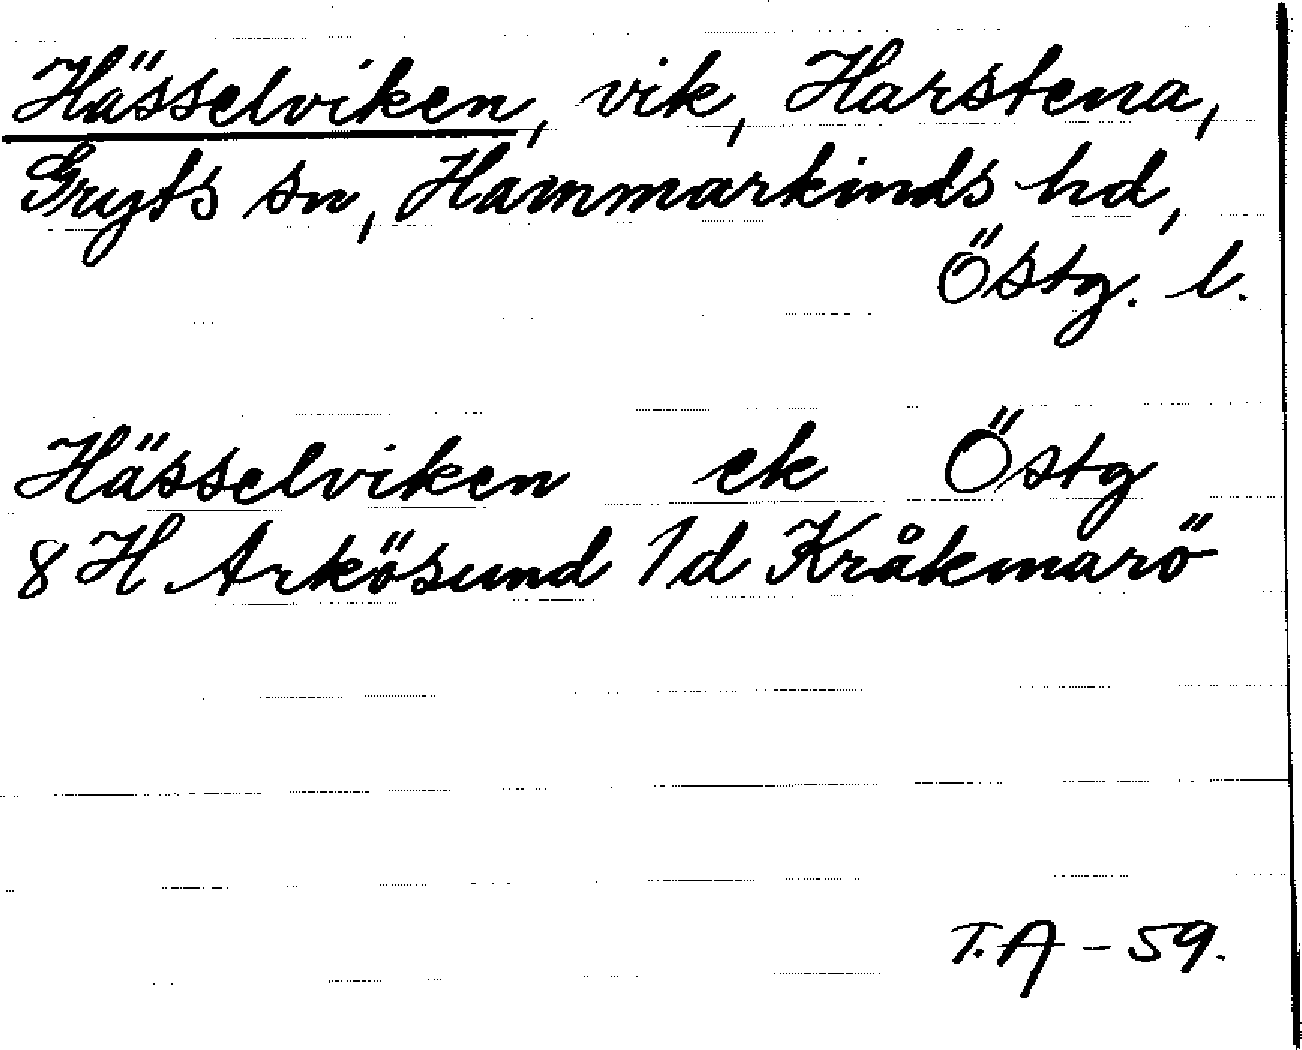 Hässelviken, vik, Harstena,
Gryts sn, Hammarkinds hd,
Östg. l.
Hässelviken ek Östg
8 H Arkösund 1d Kråkmarö
T.A - 59.